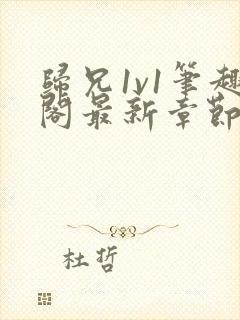 歸兄1v1筆趣
閣最新章節
杜哲